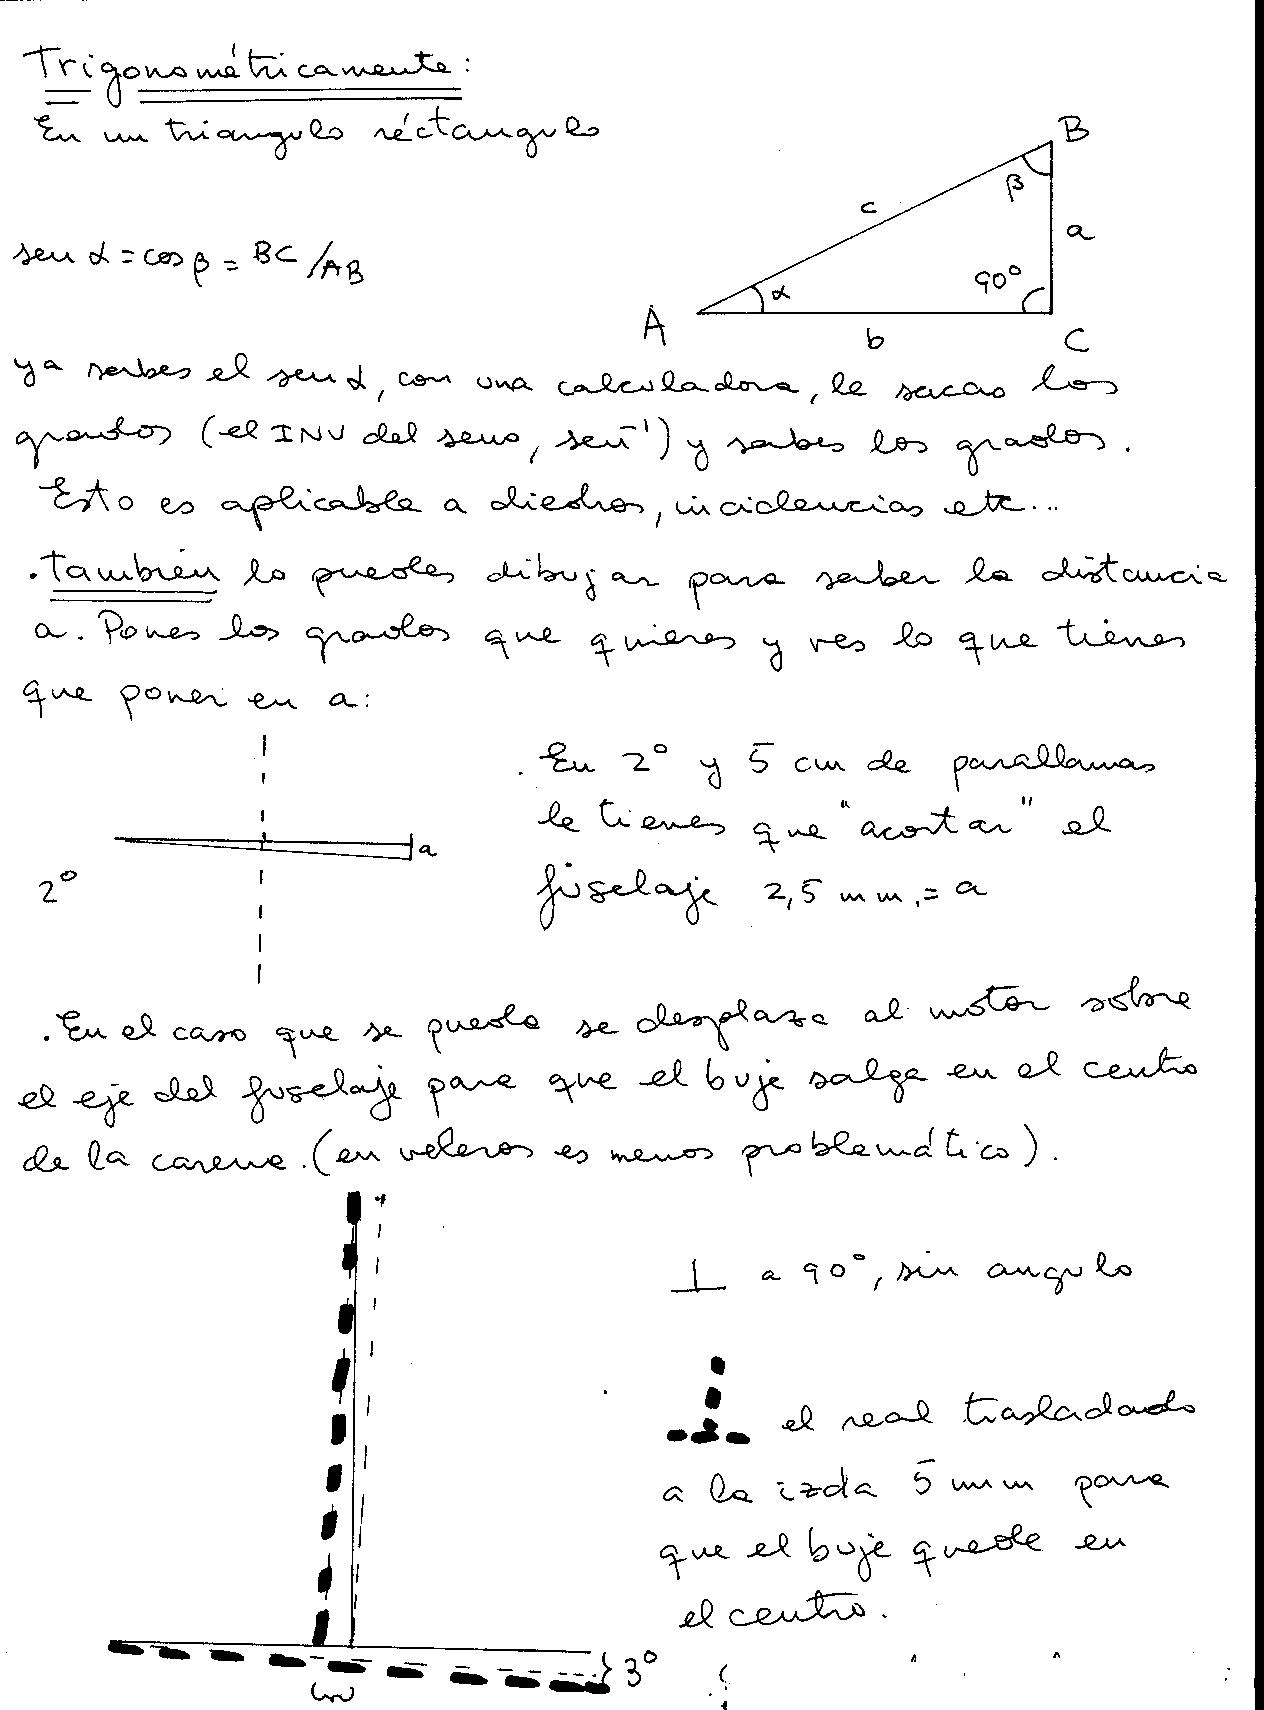 Trigonométricamente:
En un triangulo réctangulo
B
β
c
a
sen α = cos β = BC/AB
90°
α
A
b
C
ya sabes el sen α, con una calculadora, le sacas los
grados (el INV del seno, sen⁻¹) y sabes los grados.
Esto es aplicable a diedros, incidencias etc...
. También lo puedes dibujar para saber la distancia
a. Pones los grados que quieres y ves lo que tienes
que poner en a:
. En 2° y 5 cm de parallamas
le tienes que "acortar" el
a
2°
fuselaje 2,5 mm. = a
. En el caso que se pueda se desplaza al motor sobre
el eje del fuselaje para que el buje salga en el centro
de la carena. (en veleros es menos problemático).
⊥ a 90°, sin angulo
el real trasladado
a la izda 5 mm para
que el buje quede en
el centro.
3°